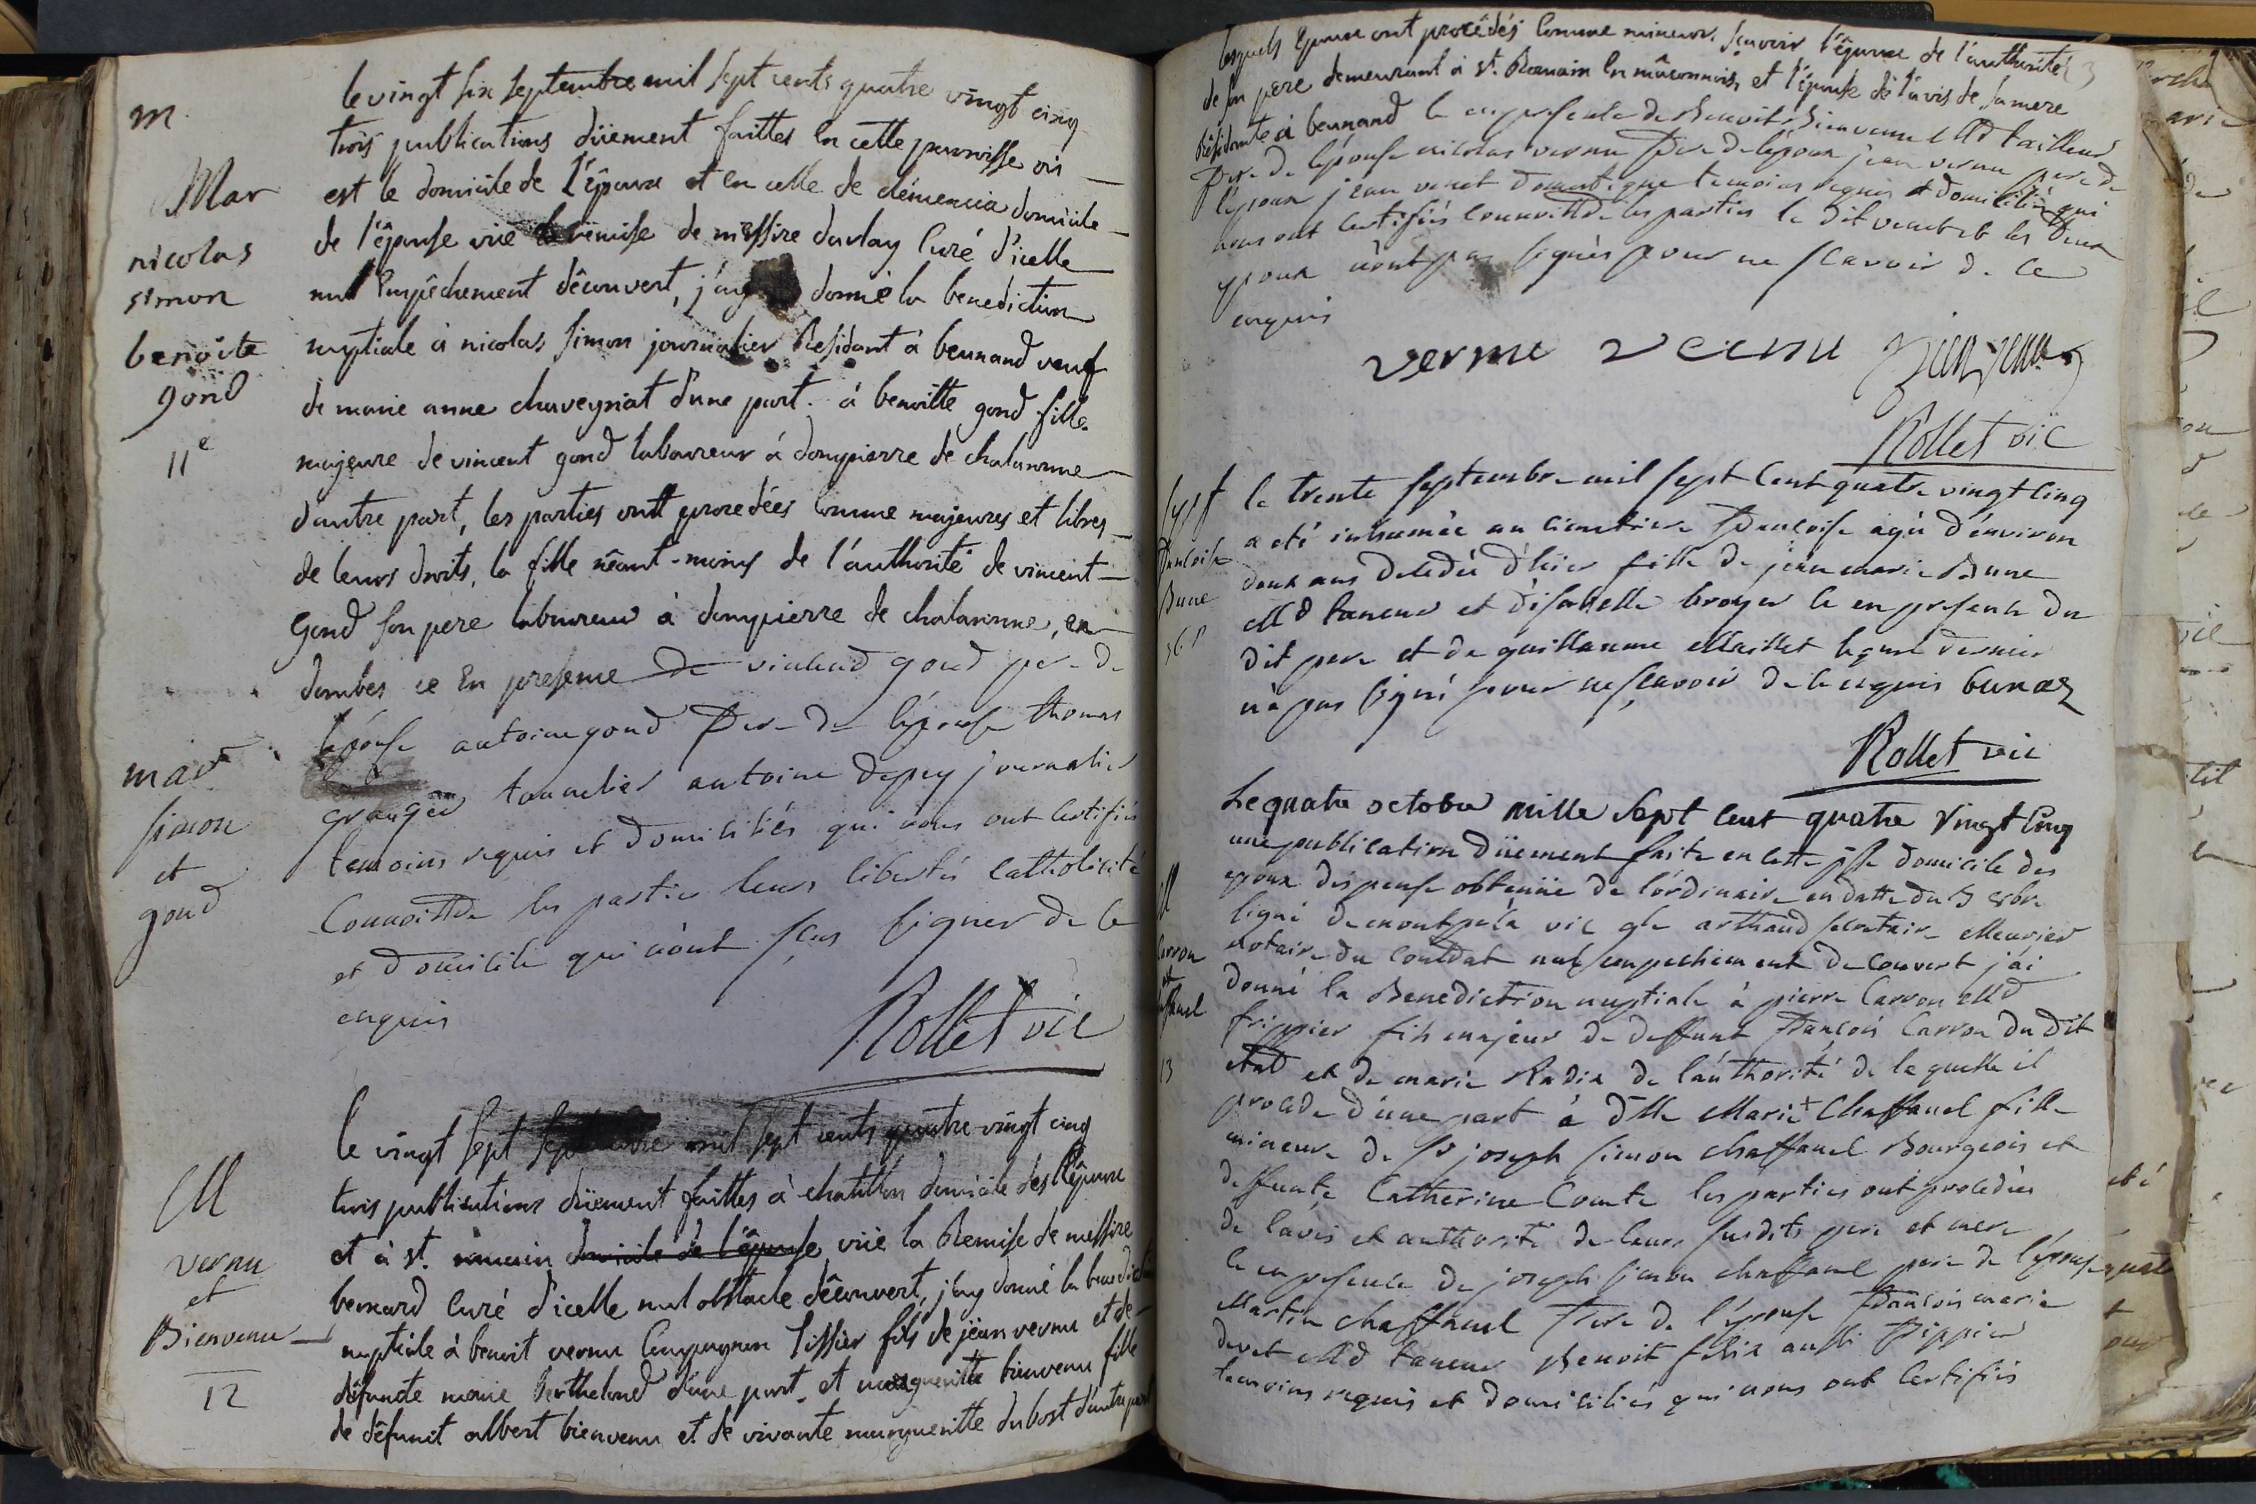 m.
Mar
nicolas
simon
benoite
gond
11e
le vingt six septembre mil sept cents quatre vingt cinq
trois publications düement faittes en cette parroisse où
est le domicile de l'époux et en celle de clémencia domicile
de l'épouse viie la remise de messire duvlay curé d'icelle
nul empêchement découvert, j'ay donné la benediction
nuptiale à nicolas simon journalier Résidant à beunand veuf
de marie anne chaveyriat d'une part. à benoitte gond fille
majeure de vincent gond laboureur à dompierre de chalaronne
d'autre part, les parties ontt procedées comme majeures et libres
de leurs droits, la fille néant-moins de l'authorité de vincent
Gond son pere laboureur à dompierre de chalaronne, en
dombes ce En presence de vincend gond pere de
l'épouse antoine gond frere de l'épouse thomas
granger tonnelier antoine dupuy journalier
temoins requis et domiciliés qui nous ont certifiés
connoitre les parties leurs libertés catholicité
et domicile qui n'ont sçus signer de ce
enquis
Rollet vic
mar
simon
et
gond
M
vernu
et
Bienvenu
12
le vingt sept septembre mil sept cents quatre-vingt cinq
trois publications düement faittes à chatillon domicile des l'époux
et à st. romain domicile de l'épouse viie la Remise de messire
bernard curé d'icelle nul obstacle découvert, j'ay donné la benediction
nuptiale à benoit vernu compagnon tissier fils de jean vernu et de
défuncte marie berthelond d'une part, et margueritte bienvenu fille
de défunct albert bienvenu et de vivante margueritte dubost d'autre part
lesquels Epoux ont procédés comme mineurs. sçavoir l'époux de l'authorité
de son pere demeurant à st. Romain en mâconnois, et l'épouse de l'avis de sa mere
Résidante à beunand ce en presence de Benoit Bienvenu Md tailleur
frere de l'épouse nicolas vernu frere de l'époux jean vernu pere de
l'époux jean venet domestique temoins requis et domiciliés qui
nous ont certifiés connoittre les parties le dit venet et les deux
epoux n'ont pas signés pour ne scavoir de ce
enquis
vernu vernu Bienvenu
Rollet vic
Sept
francoise
Bune
le trente septembre mil sept cent quatre vingt cinq
a eté inhumée au cimetiere francoise agée d'environ
deux ans decedée d'hier fille de jean marie Bune
Md taneur et d'isabelle broyer ce en presence du
dit pere et de guillaume Maillet lequel dernier
n'a pas signé pour ne scavoir de ce enquis bunaz
Rollet vic
M
Carron
et
chaffanel
13
Le quatre octobre mille sept cent quatre vingt cinq
une publication düement faite en cette psse domicile des
epoux dispense obtenüe de l'ordinaire en datte du 3 8bre
signé de montpela vic gle arthaud secretaire Meunier
notaire du combdat nul empechement decouvert j'ai
donné la Benediction nuptiale à pierre Carron Md
frippier fils majeur de deffunt francois Carron du dit
etat et de marie Radix de l'authorité de laquelle il
procede d'une part à dlle Marie+ Chaffanel fille
mineure de sr joseph simon chaffanel Bourgeois et
deffunte Catherine Comte les parties ont procedées
de lavis et authorité de leurs susdits pere et mere
ce en presence de joseph simon chaffanel pere de l'épouse
Martin chaffanel frere de l'épouse francois marie
duvet Md taneur Benoit felix aussi frippier
temoins requis et domiciliés qui nous ont certifiés